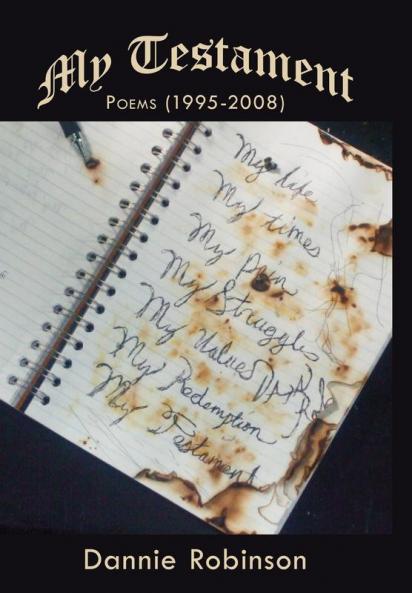 My Testament
POEMS (1995-2008)
My life
My times
My Pain
My Struggle
My Values
My Redemption
My Testament
Dannie Robinson